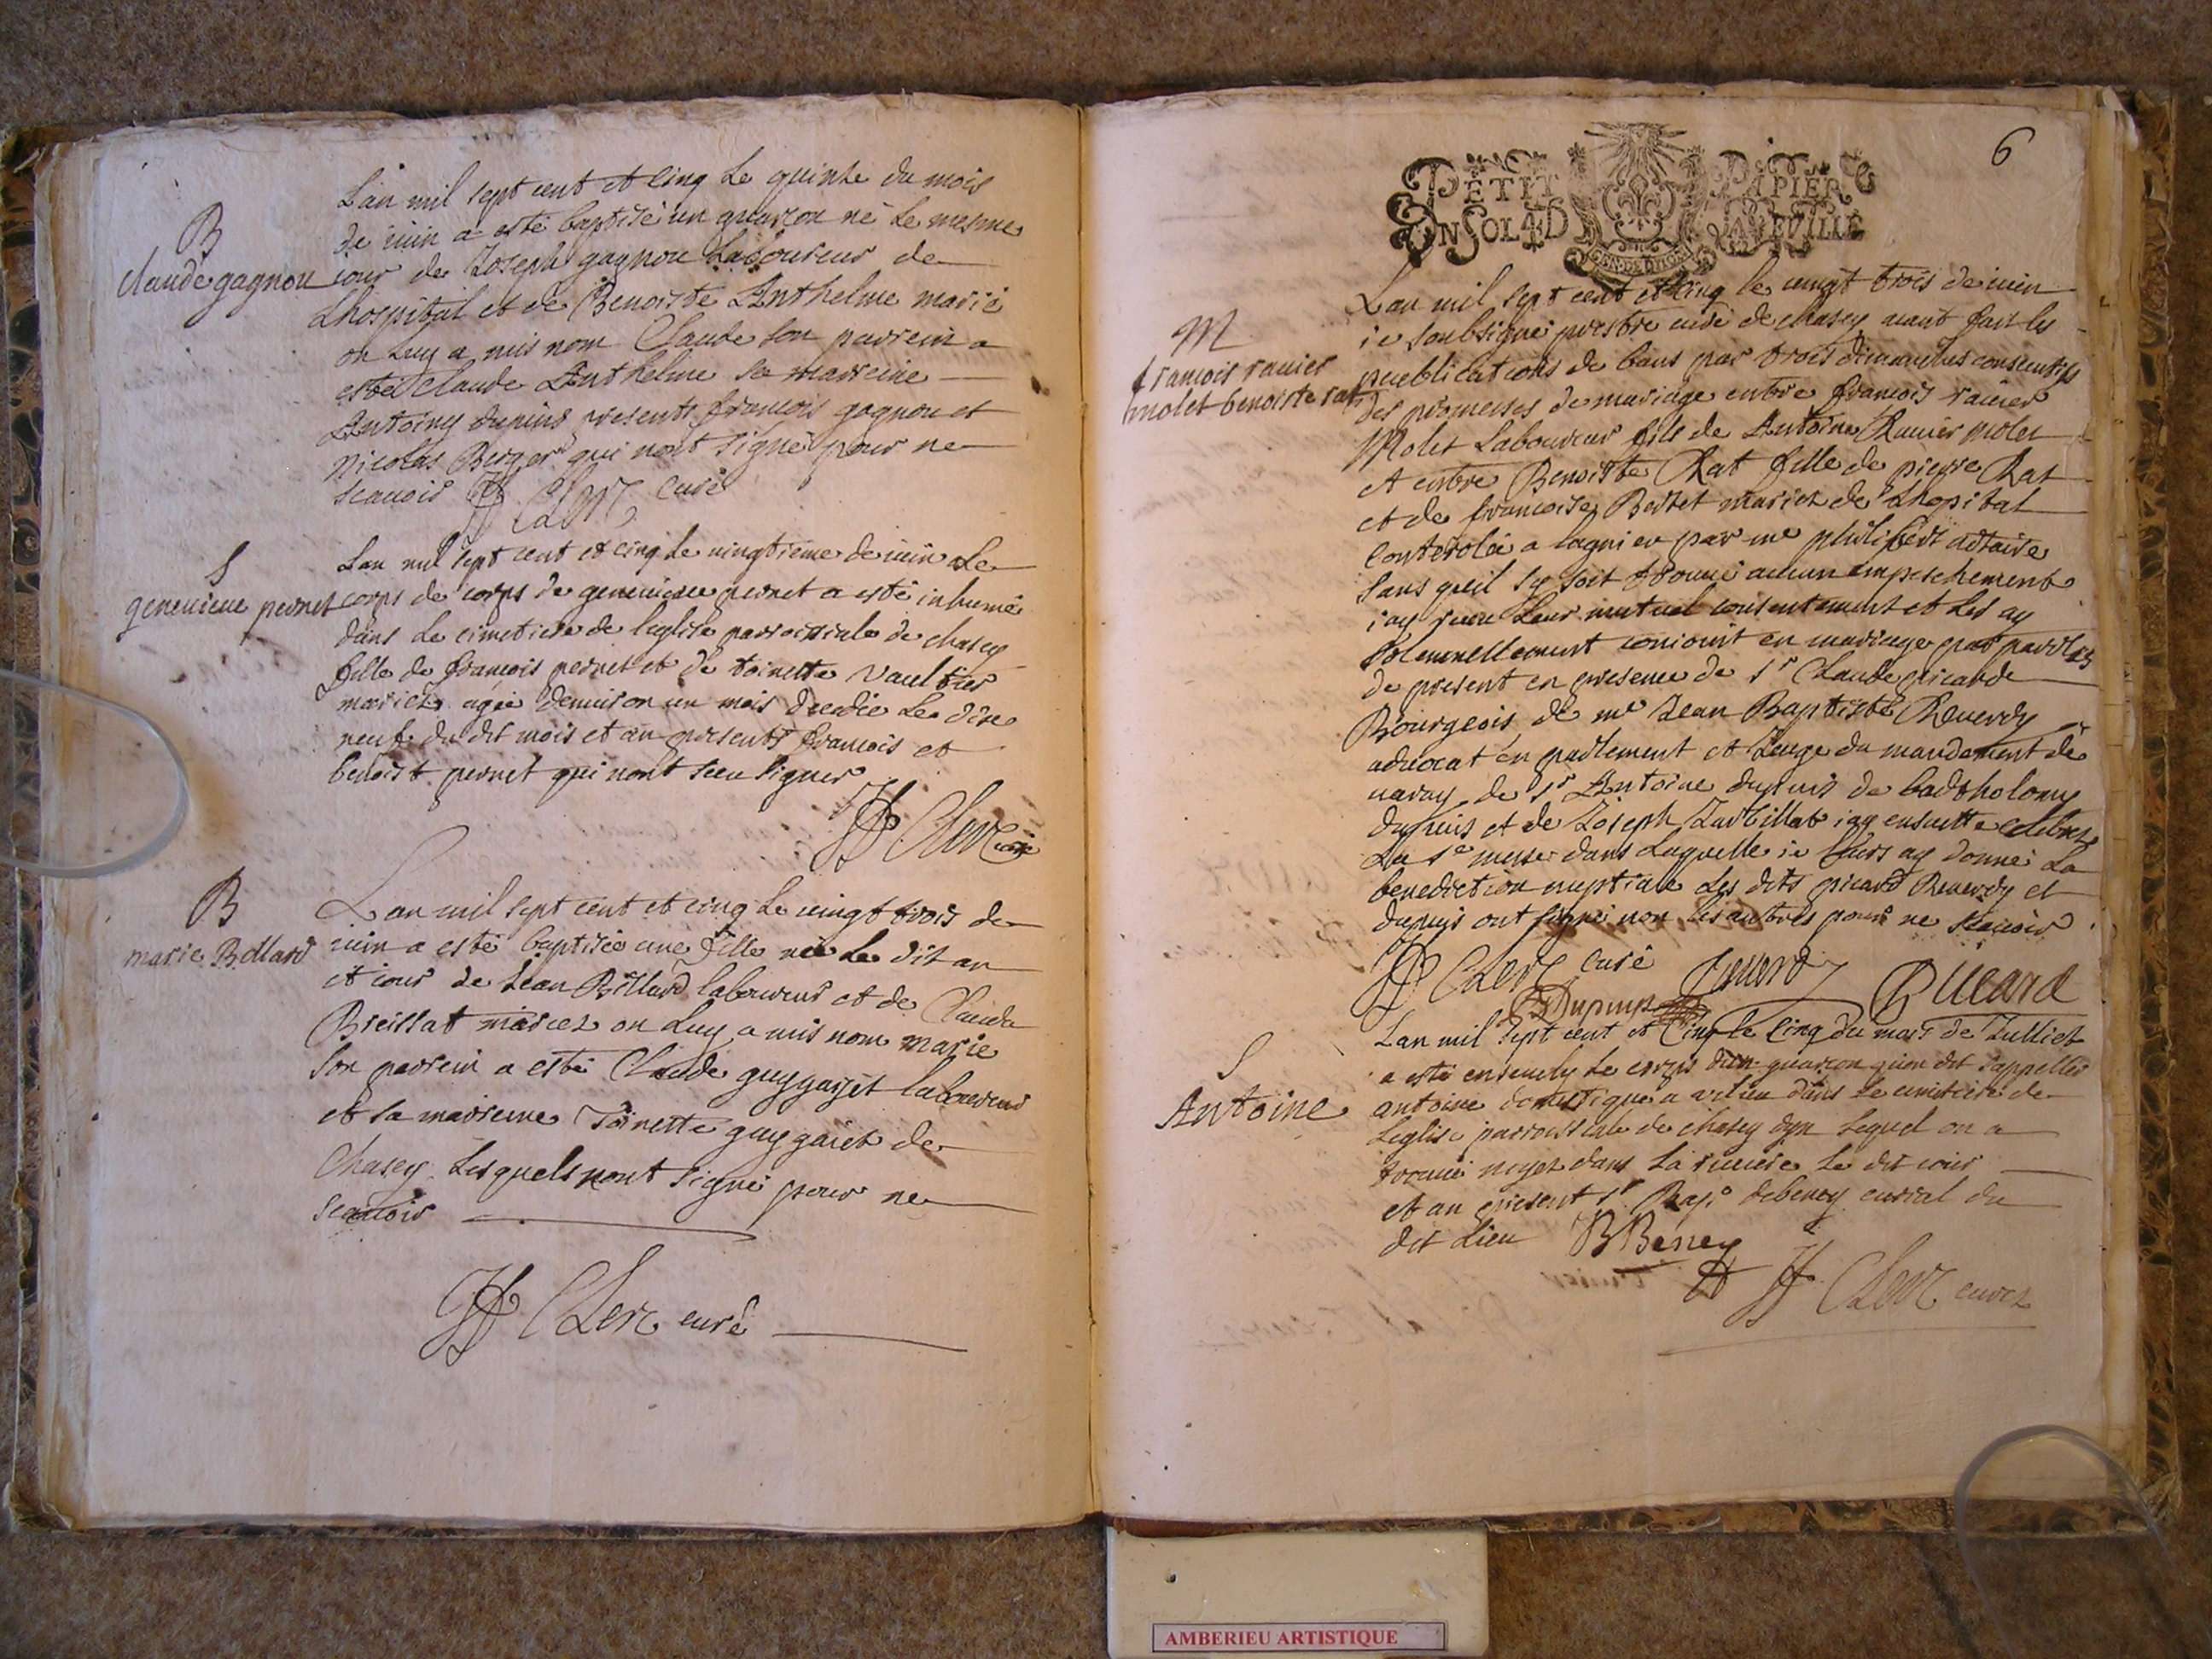 Lan mil sept cent et cinq Le quinze du mois
B
de iuin a esté baptisé un guarcon né Le mesme
claude gagnou
iour de Ioseph gagnou Laboureur de
Lhospital et de Benoiste Anthelme mariéz
on Luy a mis nom Claude son parrein a
esté Claude Anthelme sa marreine
Antoiny dupuis presents francois gagnou et
Nicolas Berger qui nont signé pour ne
scauoir Clerc curé
S
Lan mil sept cent et cinq Le vingtieme de iuin Le
genevieve pernet
corps de corps de genevieve pernet a esté inhumé
dans Le cimetiere de Leglise parroissiale de chasey
fille de francois pernet et de toinette Vaultier
mariéz agée denuiron un mois decedée Le dix
neuf du dit mois et an presents francois et
benoist pernet qui nont sceu signer
Clerc curé
B
Lan mil sept cent et cinq Le vingt trois de
marie Billard
iuin a esté baptisée une fille née Le dit an
et iour de Iean Billard laboureur et de Clauda
Breissat mariez on Luy a mis nom Marie
Son parrein a esté Claude guygarjet laboureur
et sa marreine Toinette guygaret de
Chasey Lesquels nont signé pour ne
scauoir
Clerc curé
6
PETIT PAPIER
UN SOL 4 D LA FEUILLE
Lan mil sept cent et cinq le vingt trois de iuin
M
ie soubsigné prestre curé de chasey aiant fait les
francois ravier
publications de bans par trois dimanches consecutifs
molet benoiste rat
des promesses de mariage entre francois ravier
Molet Laboureur fils de Antoine Ravier molet
et entre Benoiste Rat fille de pierre Rat
et de francoise Bertet mariez de Lhopital
Controlée a lagnieu par me philibert
Sans queil sy soit trouué aucun empeschement
iay receu Leur mutuel consentement et Les ay
solemnellement conioint en mariage par parolles
de present en presence de sr Claude picard
Bourgeois de me Iean Baptiste Reuerdy
aduocat en parlement et Iuge du mandement de
varay de sr Antoine dupuis de bartholomy
dupuis et de Ioseph Iarbillat iay ensuitte celebré
La ste messe dans Laquelle ie Leurs ay donné La
benediction nuptiale Les dits picard Reuerdy et
dupuis ont signé non les autres pour ne scauoir
Clerc curé Reuerdy Picard
Dupuis
Lan mil sept cent et cinq le cinq du mois de Iulliet
S
a esté enseuely Le corps dun guarcon quon dit sappeller
Antoine
antoine domestique a vilieu dans Le cimitiere de
Leglise parroissiale de chasey Lequel on a
trouué noyez dans La riuiere Le dit iour
et an present sr debeney curial du
dit Lieu BBeney
Clerc curez
AMBERIEU ARTISTIQUE